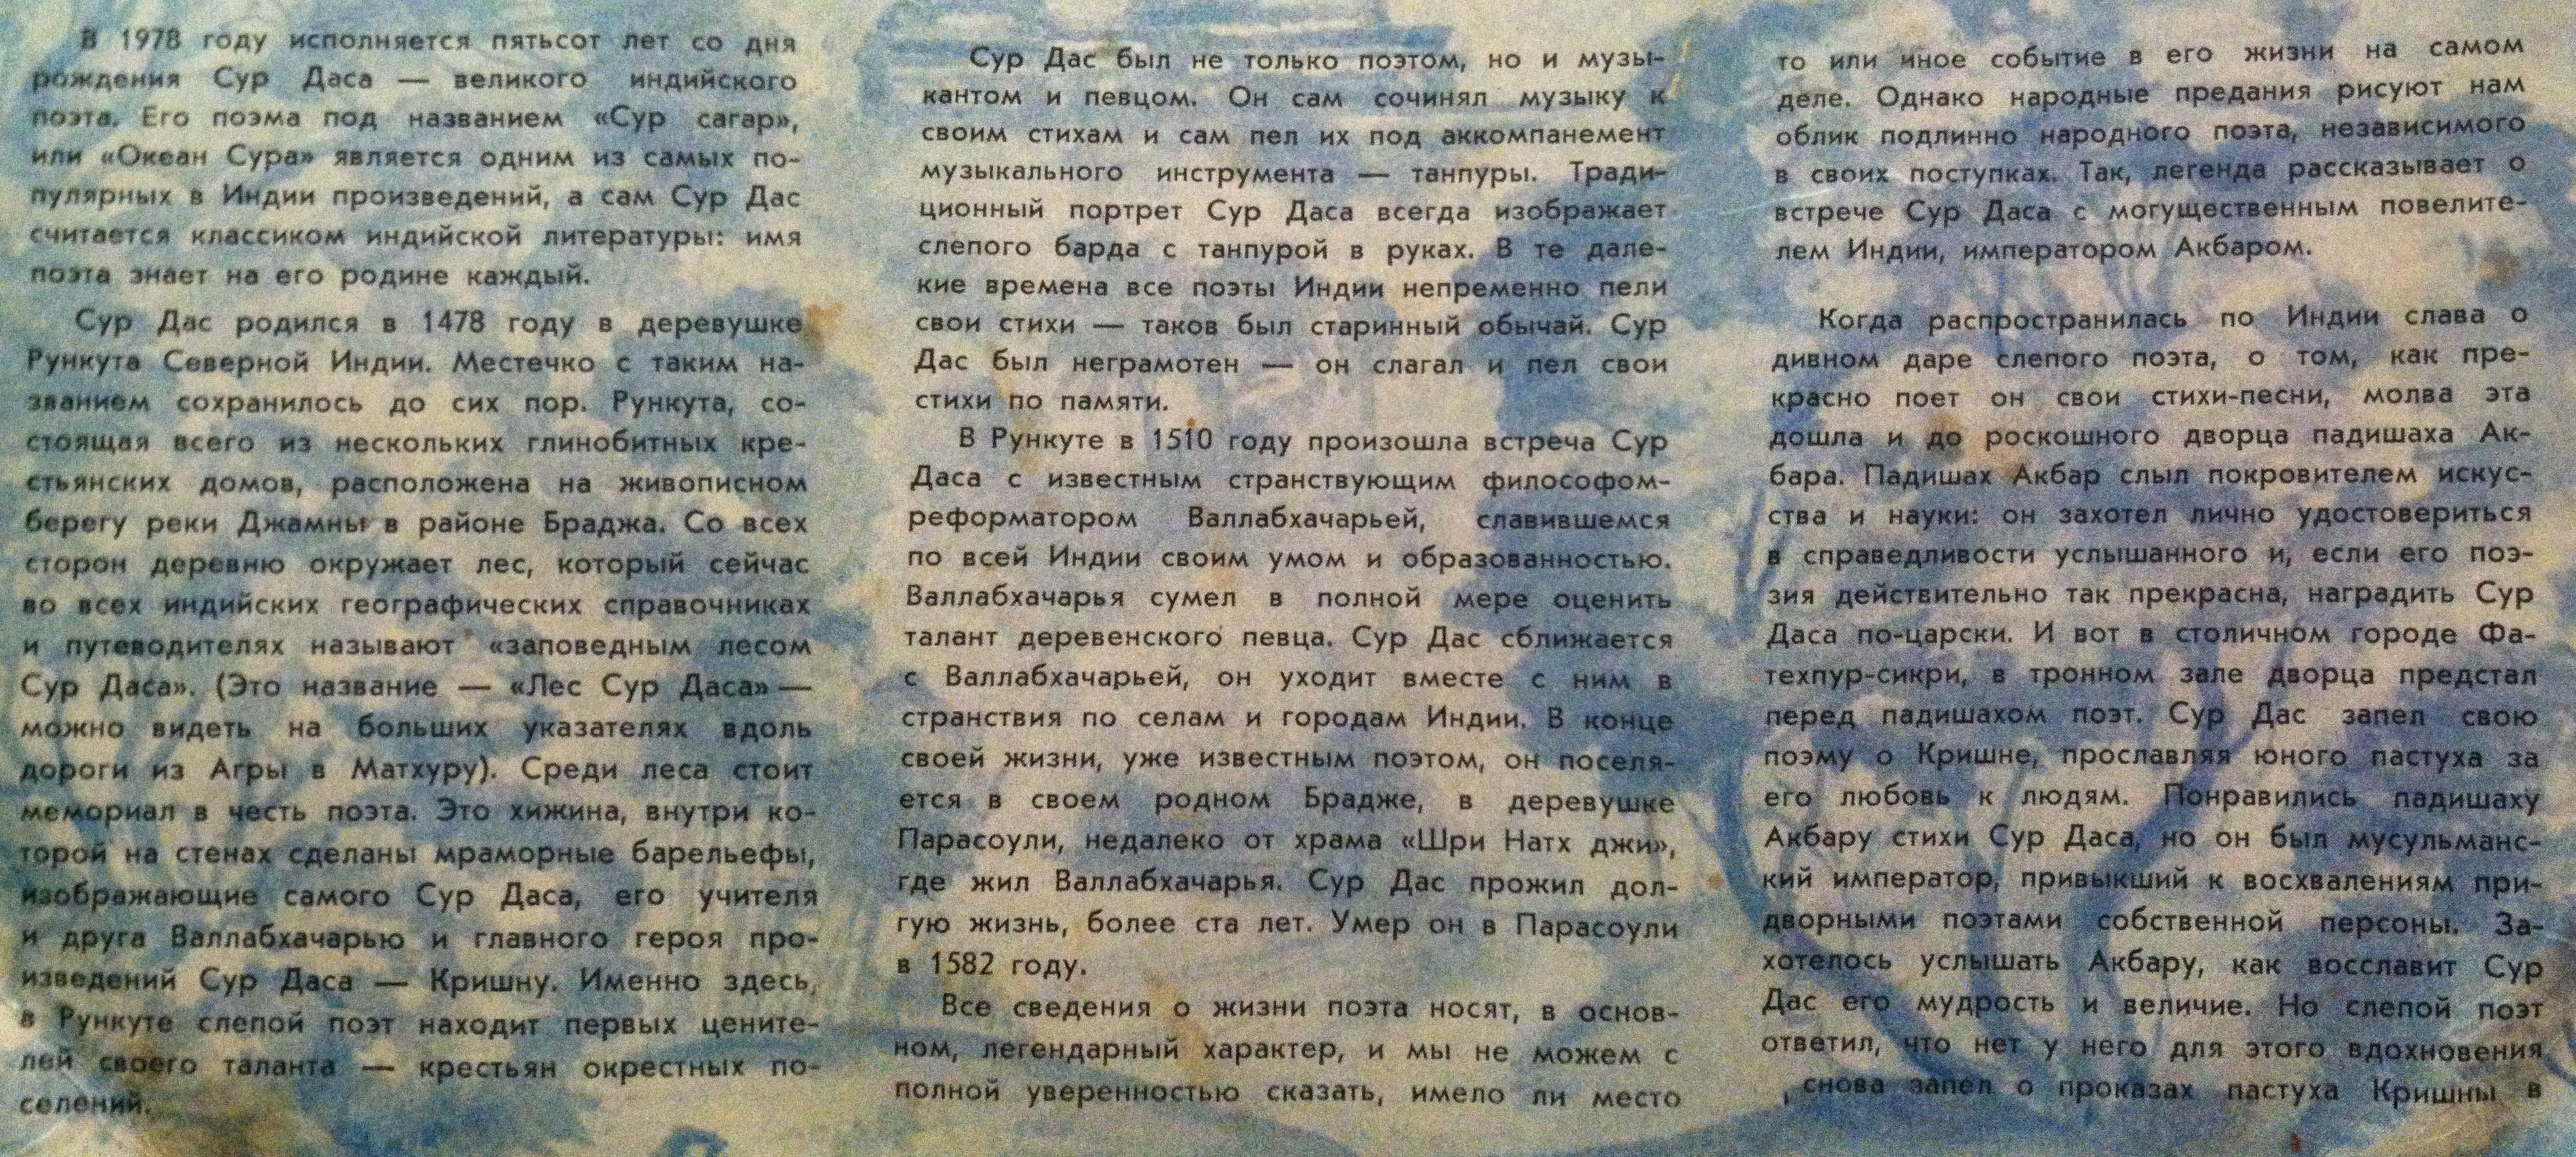 В 1978 году исполняется пятьсот лет со дня
рождения Сур Даса — великого индийского
поэта. Его поэма под названием «Сур сагар»,
или «Океан Сура» является одним из самых по-
пулярных в Индии произведений, а сам Сур Дас
считается классиком индийской литературы: имя
поэта знает на его родине каждый.
Сур Дас родился в 1478 году в деревушке
Рункута Северной Индии. Местечко с таким на-
званием сохранилось до сих пор. Рункута, со-
стоящая всего из нескольких глинобитных кре-
стьянских домов, расположена на живописном
берегу реки Джамны в районе Браджа. Со всех
сторон деревню окружает лес, который сейчас
во всех индийских географических справочниках
и путеводителях называют «заповедным лесом
Сур Даса». (Это название — «Лес Сур Даса» —
можно видеть на больших указателях вдоль
дороги из Агры в Матхуру). Среди леса стоит
мемориал в честь поэта. Это хижина, внутри ко-
торой на стенах сделаны мраморные барельефы,
изображающие самого Сур Даса, его учителя
и друга Валлабхачарью и главного героя про-
изведений Сур Даса — Кришну. Именно здесь,
в Рункуте слепой поэт находит первых цените-
лей своего таланта — крестьян окрестных по-
селений.
Сур Дас был не только поэтом, но и музы-
кантом и певцом. Он сам сочинял музыку к
своим стихам и сам пел их под аккомпанемент
музыкального инструмента — танпуры. Тради-
ционный портрет Сур Даса всегда изображает
слепого барда с танпурой в руках. В те дале-
кие времена все поэты Индии непременно пели
свои стихи — таков был старинный обычай. Сур
Дас был неграмотен — он слагал и пел свои
стихи по памяти.
В Рункуте в 1510 году произошла встреча Сур
Даса с известным странствующим философом-
реформатором Валлабхачарьей, славившемся
по всей Индии своим умом и образованностью.
Валлабхачарья сумел в полной мере оценить
талант деревенского певца. Сур Дас сближается
с Валлабхачарьей, он уходит вместе с ним в
странствия по селам и городам Индии. В конце
своей жизни, уже известным поэтом, он поселя-
ется в своем родном Брадже, в деревушке
Парасоули, недалеко от храма «Шри Натх джи»,
где жил Валлабхачарья. Сур Дас прожил дол-
гую жизнь, более ста лет. Умер он в Парасоули
в 1582 году.
Все сведения о жизни поэта носят, в основ-
ном, легендарный характер, и мы не можем с
полной уверенностью сказать, имело ли место
то или иное событие в его жизни на самом
деле. Однако народные предания рисуют нам
облик подлинно народного поэта, независимого
в своих поступках. Так, легенда рассказывает о
встрече Сур Даса с могущественным повелите-
лем Индии, императором Акбаром.
Когда распространилась по Индии слава о
дивном даре слепого поэта, о том, как пре-
красно поет он свои стихи-песни, молва эта
дошла и до роскошного дворца падишаха Ак-
бара. Падишах Акбар слыл покровителем искус-
ства и науки: он захотел лично удостовериться
в справедливости услышанного и, если его поэ-
зия действительно так прекрасна, наградить Сур
Даса по-царски. И вот в столичном городе Фа-
техпур-сикри, в тронном зале дворца предстал
перед падишахом поэт. Сур Дас запел свою
поэму о Кришне, прославляя юного пастуха за
его любовь к людям. Понравились падишаху
Акбару стихи Сур Даса, но он был мусульманс-
кий император, привыкший к восхвалениям при-
дворными поэтами собственной персоны. За-
хотелось услышать Акбару, как восславит Сур
Дас его мудрость и величие. Но слепой поэт
ответил, что нет у него для этого вдохновения
снова запел о проказах пастуха Кришны в